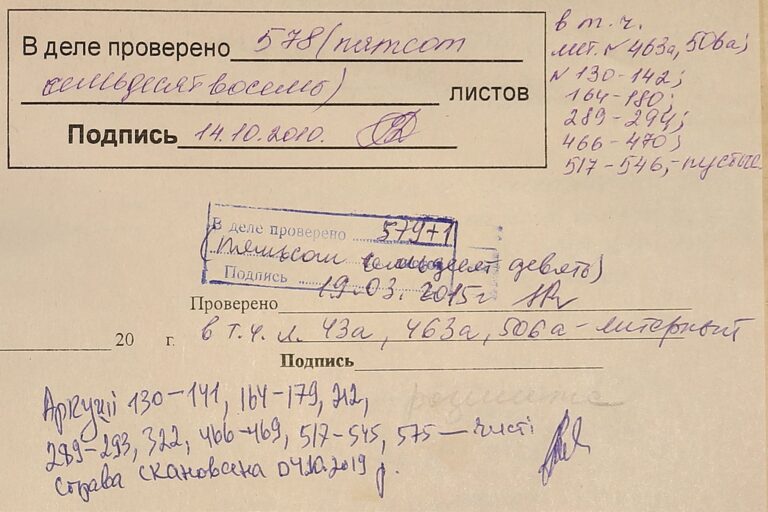 В деле проверено 578 (пятсот
семьдесят восемь) листов
Подпись 14.10.2010.
в т. ч.
лит. N 463а, 506а;
N 130-142;
164-180;
289-294;
466-470;
517-546,-пустые
В деле проверено 579+1
(пятьсот семьдесят девять)
Подпись
19.03.2015г
Проверено
в т.ч. л. 43а, 463а, 506а-литерный
20 г.
Подпись
Аркуші 130-141, 164-179, 212,
289-293, 322, 466-469, 517-545, 575 — чисті
Справа сканована 04.10.2019 р.